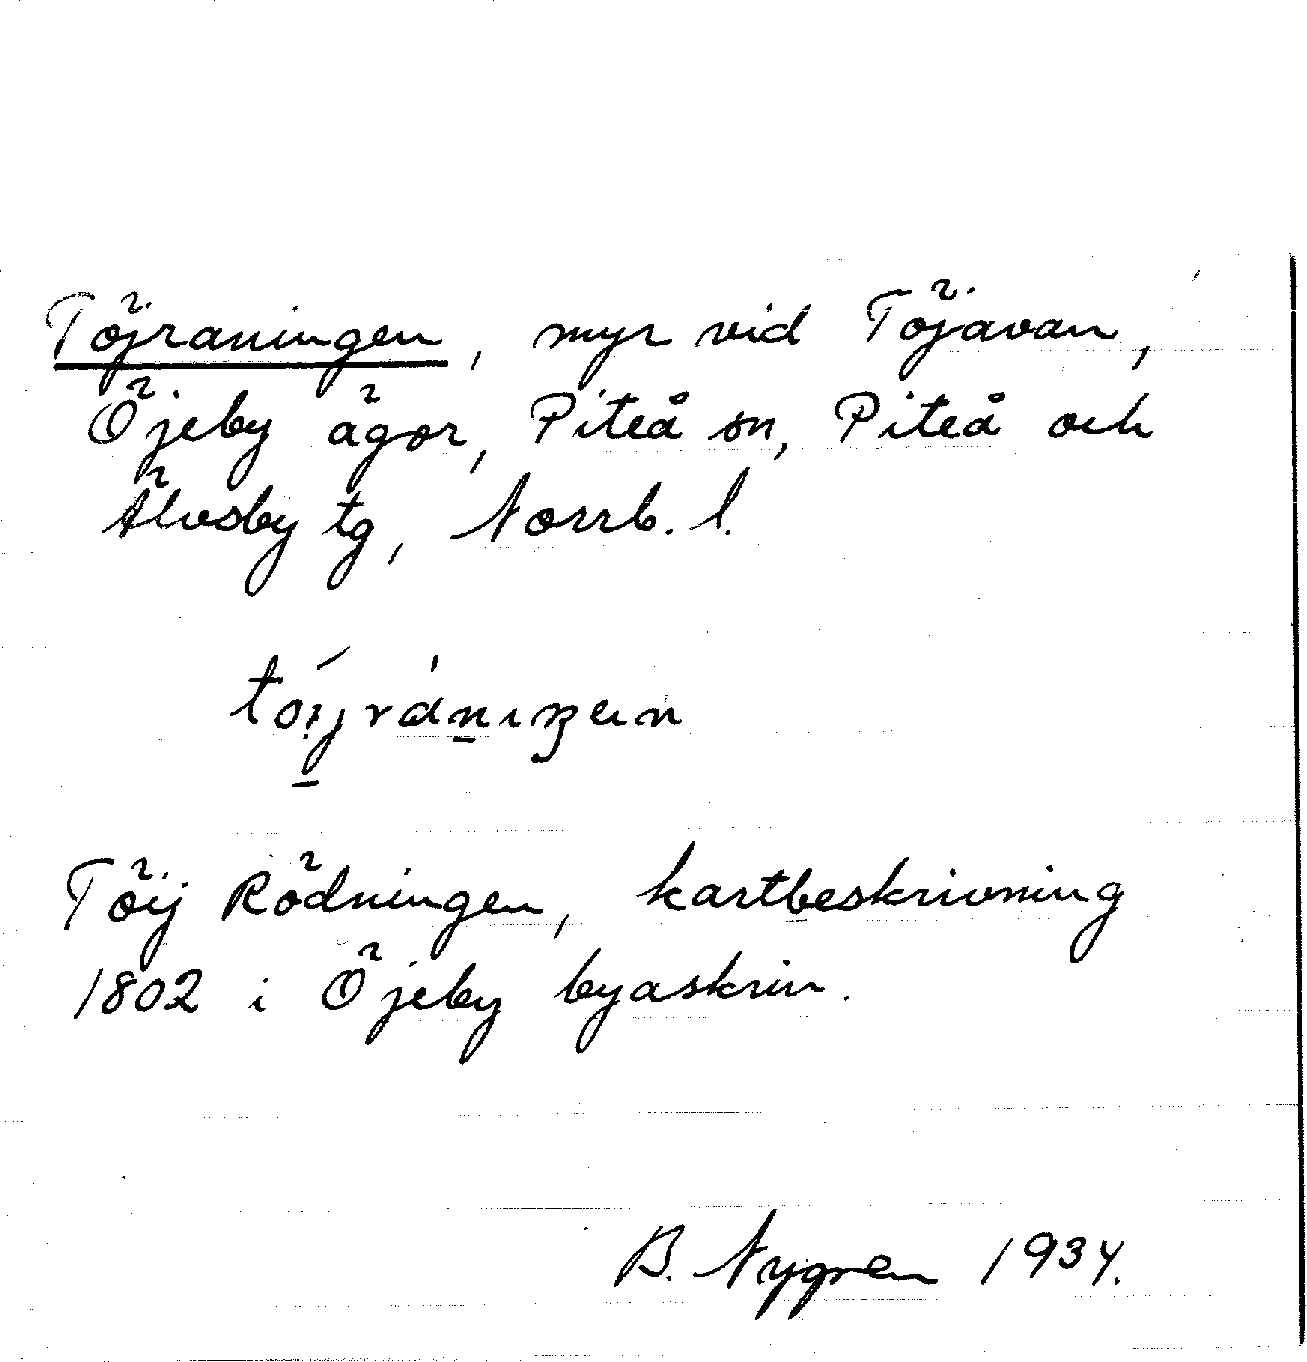 Töjraningen, myr vid Töjavan,
Öjeby ägor, Piteå sn, Piteå och
Älvsby tg, Norrb. l.
Töij Rödningen, kartbeskrivning
1802 i Öjeby byaskrin.
B. Nygren 1934.